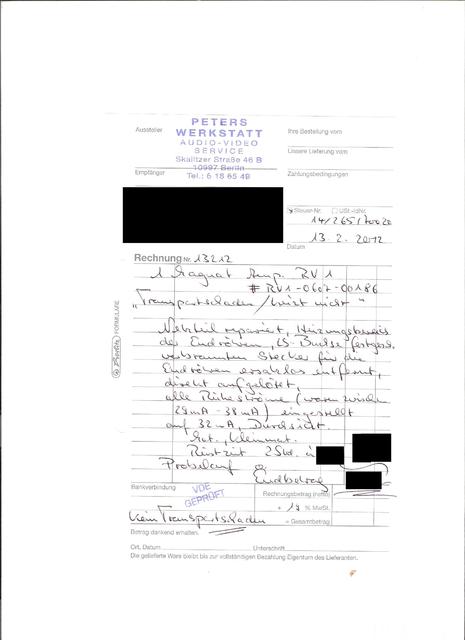 PETERS
WERKSTATT
AUDIO-VIDEO
SERVICE
Skalitzer Straße 46 B
10997 Berlin
Tel.: 6 18 65 49
Aussteller
Empfänger
Ihre Bestellung vom
Unsere Lieferung vom
Zahlungsbedingungen
Steuer-Nr. USt.-IdNr.
14/265/70020
13.2.2012
Datum
Rechnung Nr. 13212
1 Magnat Amp. RV 1
# RV1-0607-00186
„Transportschaden / heizt nicht"
Netzteil repariert, Heizungsbereich
der Endröhren, LS-Buchse festgesch.
verbrannten Stecker für die
Endröhren ersatzlos entfernt,
direkt aufgelötet,
alle Ruheströme (waren zwischen
28mA - 38mA) eingestellt
auf 32mA, Durchsicht.
Mat., Kleinmat.
2 Std. à
Probelauf
Endbetrag
Bankverbindung
VDE
GEPRÜFT
Rechnungsbetrag (netto)
+ 19 % MwSt.
= Gesamtbetrag
Kein Transportschaden
Betrag dankend erhalten.
Ort, Datum
Unterschrift
Die gelieferte Ware bleibt bis zur vollständigen Bezahlung Eigentum des Lieferanten.
FORMULARE